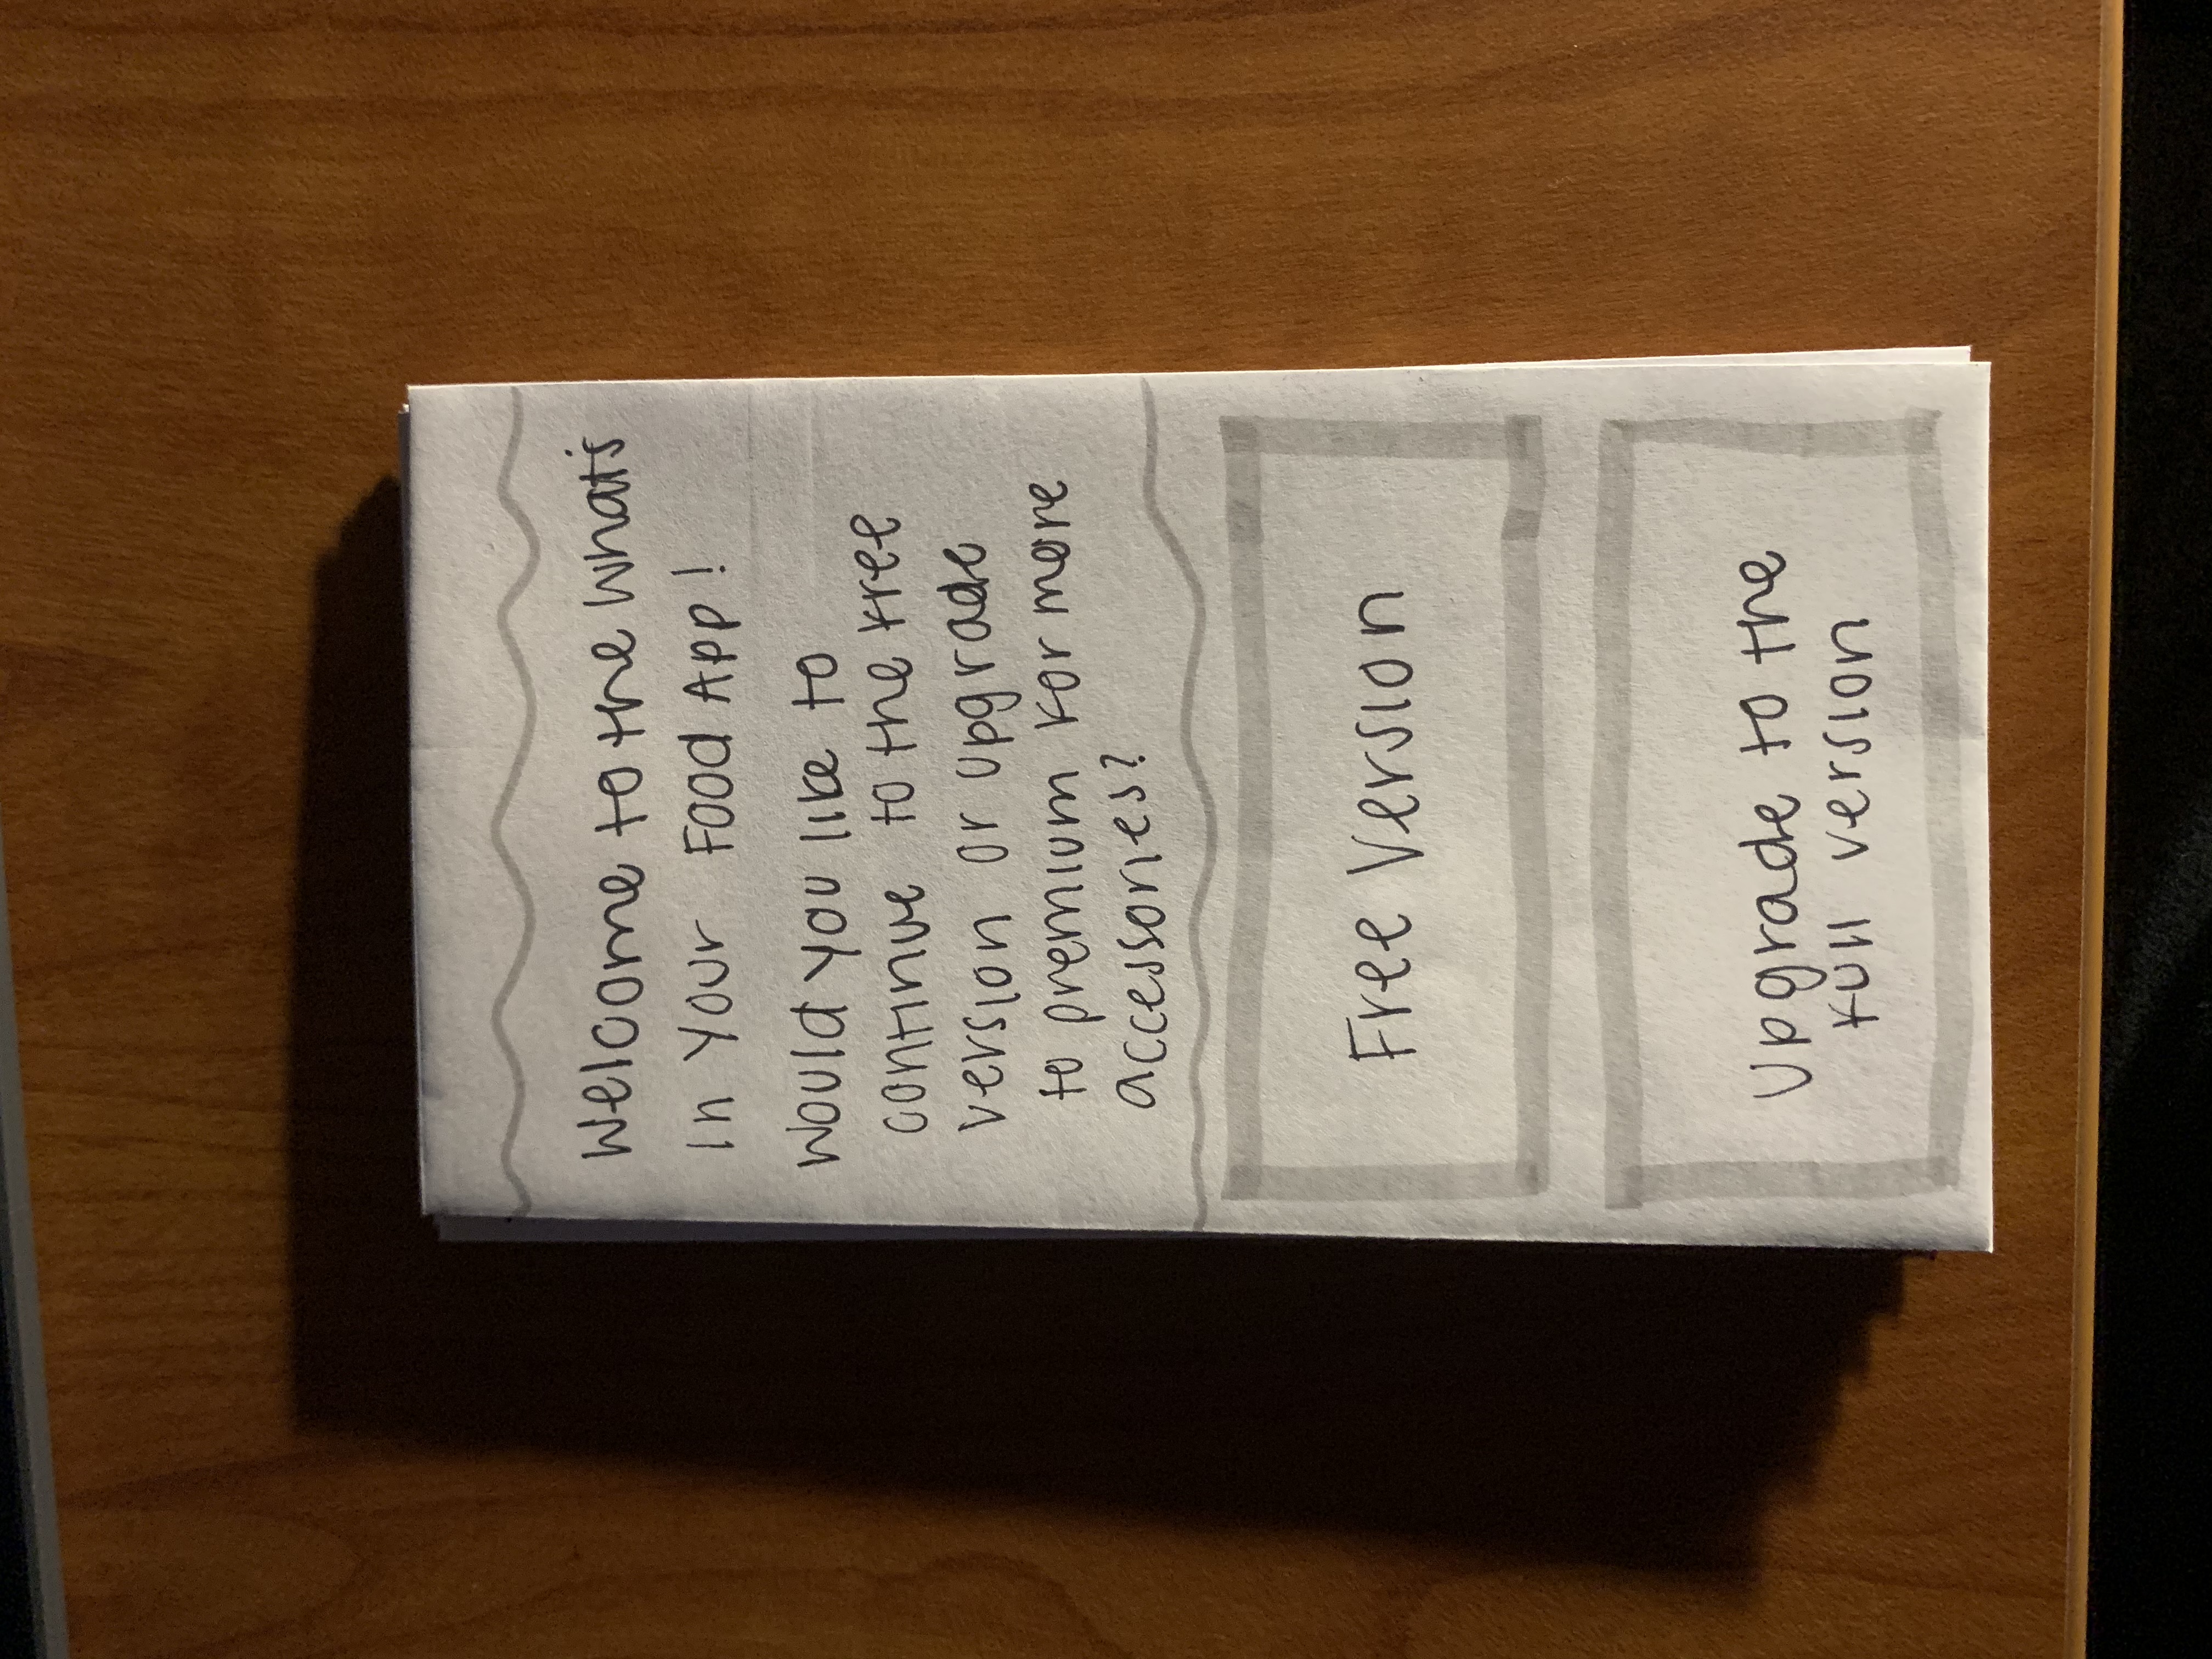 Welcome to the What's
In Your Food App!
Would you like to
continue to the free
version or upgrade
to premium for more
accessories?
Free Version
Upgrade to the
full version